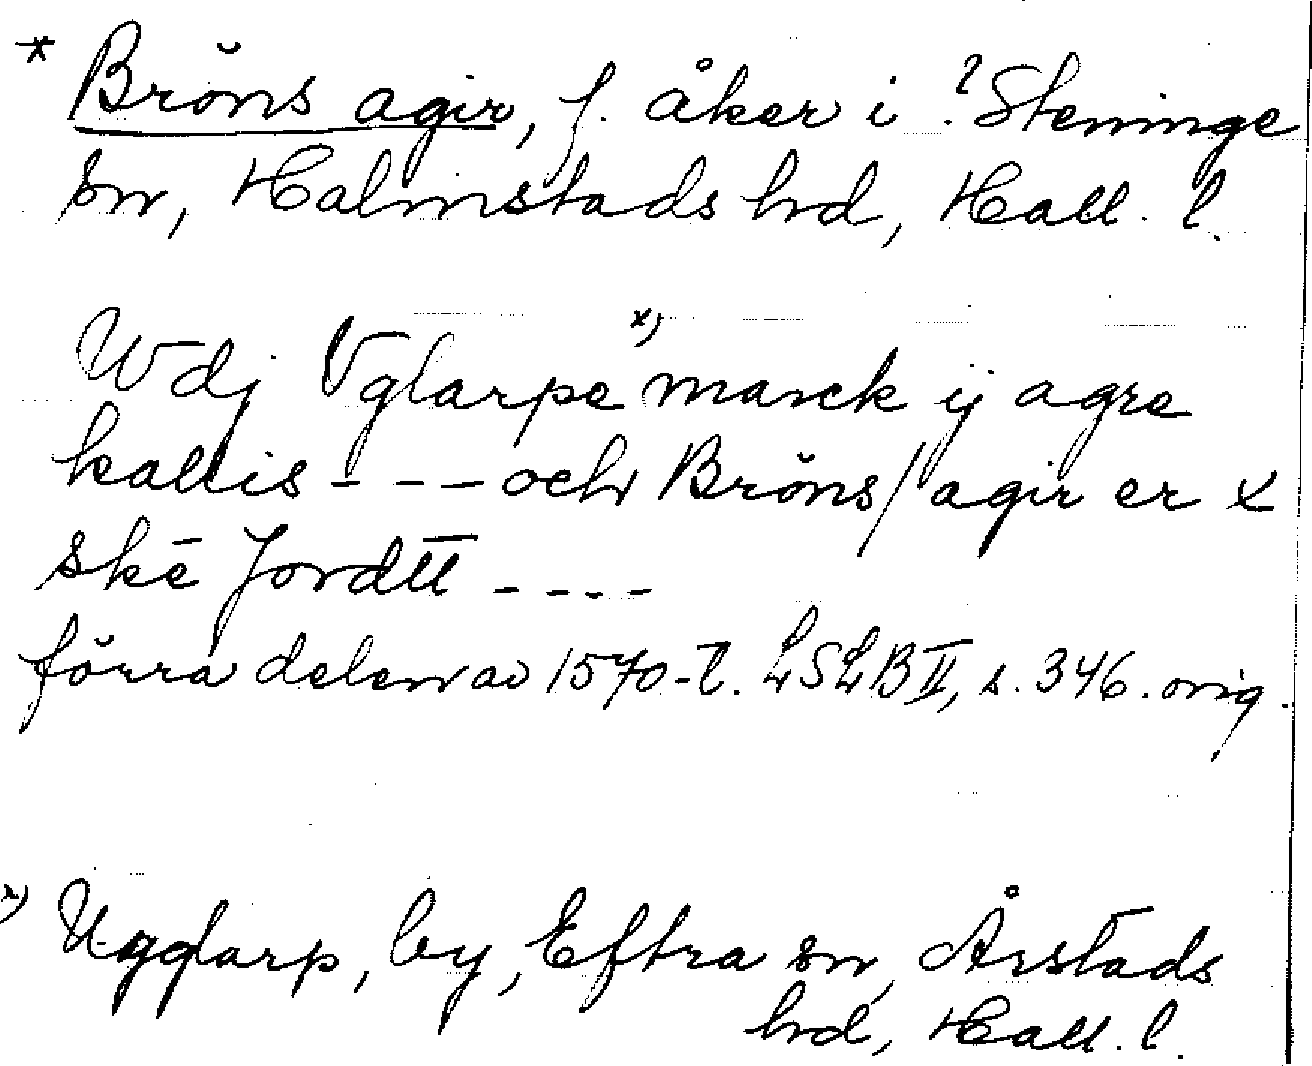 * Bröns agir, f. åker i ? Steninge
sn, Halmstads hd, Hall. l.
Wdj Vglarpe x) marck ij agre
kallis - - - och Bröns/agir er x
skē Jordtt - - - -
förra delen av 1570-t. LSLB II, s. 346. orig.
x) Ugglarp, by, Eftra sn, Årstads
hd, Hall. l.